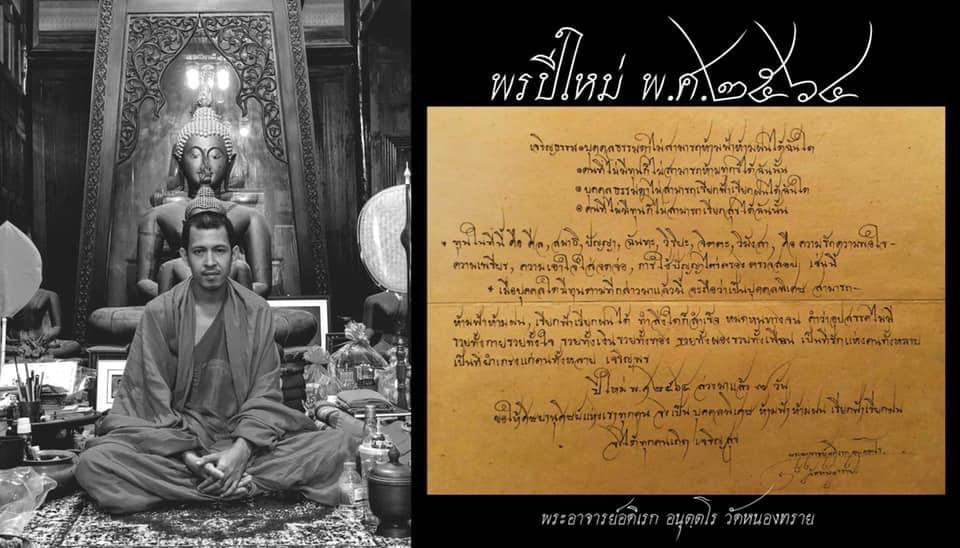 พรปีใหม่ พ.ศ.๒๕๖๔
เจริญธรรม ๏ บุคคลธรรมดาไม่สามารถห้ามฟ้าห้ามฝนได้ฉันใด
๏ คนที่ไม่มีทุนก็ไม่สามารถห้ามทุกข์ได้ฉันนั้น
๏ บุคคลธรรมดาไม่สามารถเรียกฟ้าเรียกฝนได้ฉันใด
๏ คนที่ไม่มีทุนก็ไม่สามารถเรียกสุขได้ฉันนั้น
* ทุนในที่นี้ คือ ศีล, สมาธิ, ปัญญา, ฉันทะ, วิริยะ, จิตตะ, วิมังสา, คือ ความรักความพอใจ-
ความเพียร, ความเอาใจใส่จดจ่อ, การใช้ปัญญาไตร่ตรอง ตรวจสอบ, เช่นนี้
* เมื่อบุคคลใดมีทุนตามที่กล่าวมาแล้วนี้ จะถือว่าเป็นบุคคลพิเศษ สามารถ-
ห้ามฟ้าห้ามฝน, เรียกฟ้าเรียกฝนได้ ทำสิ่งใดก็สำเร็จ หมดหนทางจน คำว่าอุปสรรคไม่มี
รวยทั้งกายรวยทั้งใจ รวยทั้งเงินรวยทั้งทอง รวยทั้งผองรวมทั้งเพื่อน เป็นที่รักแห่งคนทั้งหลาย
เป็นที่ยำเกรงแก่คนทั้งหลาย เจริญพร
ปีใหม่ พ.ศ ๒๕๖๔ ล่วงมาแล้ว ๗ วัน
ขอให้ศิษยานุศิษย์แห่งเราทุกคน จงเป็นบุคคลพิเศษ ห้ามฟ้าห้ามฝน เรียกฟ้าเรียกฝน
ได้ทุกคนเถิด เจริญสุข
พระอาจารย์อดิเรก อนุตฺตโร วัดหนองทราย